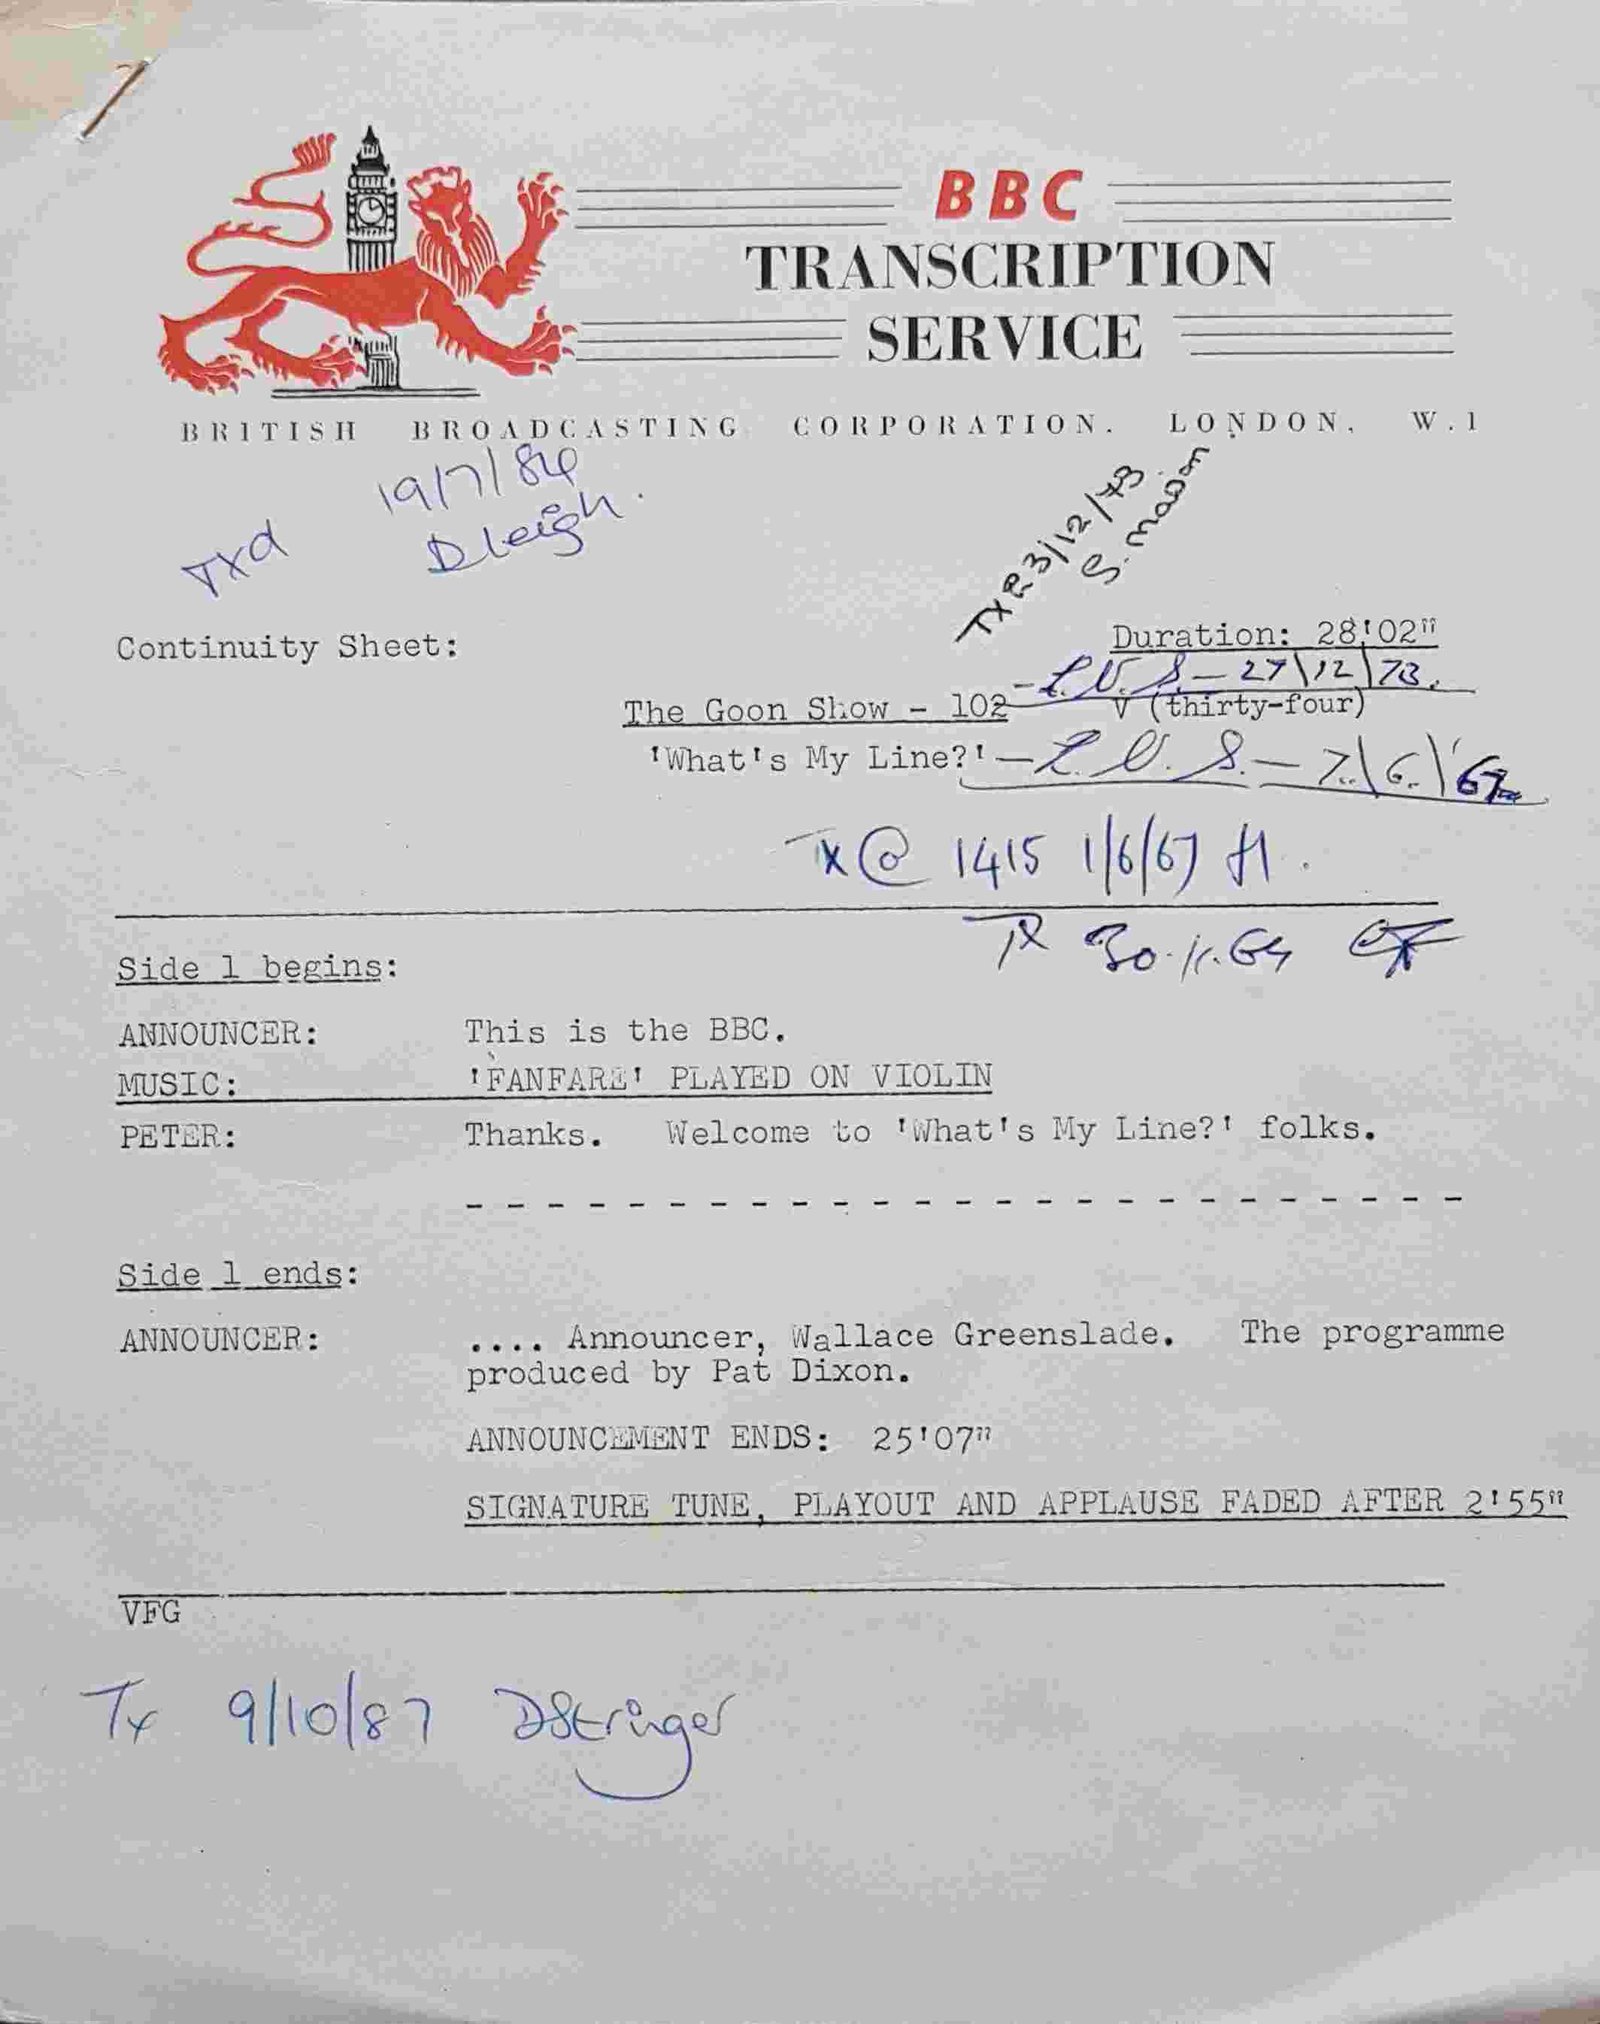 BBC
TRANSCRIPTION
SERVICE
BRITISH BROADCASTING CORPORATION. LONDON, W.1
Txd 19/7/84
D Leigh.
3/12/73
S. Mason
Continuity Sheet:
Duration: 28'02"
The Goon Show - 102 - L.V.S. - 27/12/73.
V (thirty-four)
'What's My Line?' - L.V.S. - 7./6./'67
TX @ 1415 1/6/67
Side 1 begins:
TX 30.11.64
ANNOUNCER: This is the BBC.
MUSIC: 'FANFARE' PLAYED ON VIOLIN
PETER: Thanks. Welcome to 'What's My Line?' folks.
- - - - - - - - - - - - - - - - - - - - - - - - -
Side 1 ends:
ANNOUNCER: .... Announcer, Wallace Greenslade. The programme
produced by Pat Dixon.
ANNOUNCEMENT ENDS: 25'07"
SIGNATURE TUNE, PLAYOUT AND APPLAUSE FADED AFTER 2'55"
VFG
Tx 9/10/87 DStringer